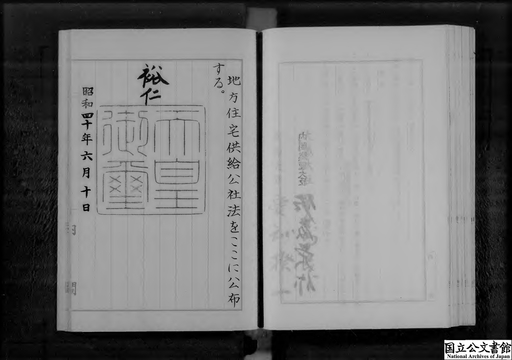 地方住宅供給公社法をここに公布
する。
裕仁
天皇
御璽
昭和四十年六月十日
国立公文書館
National Archives of Japan